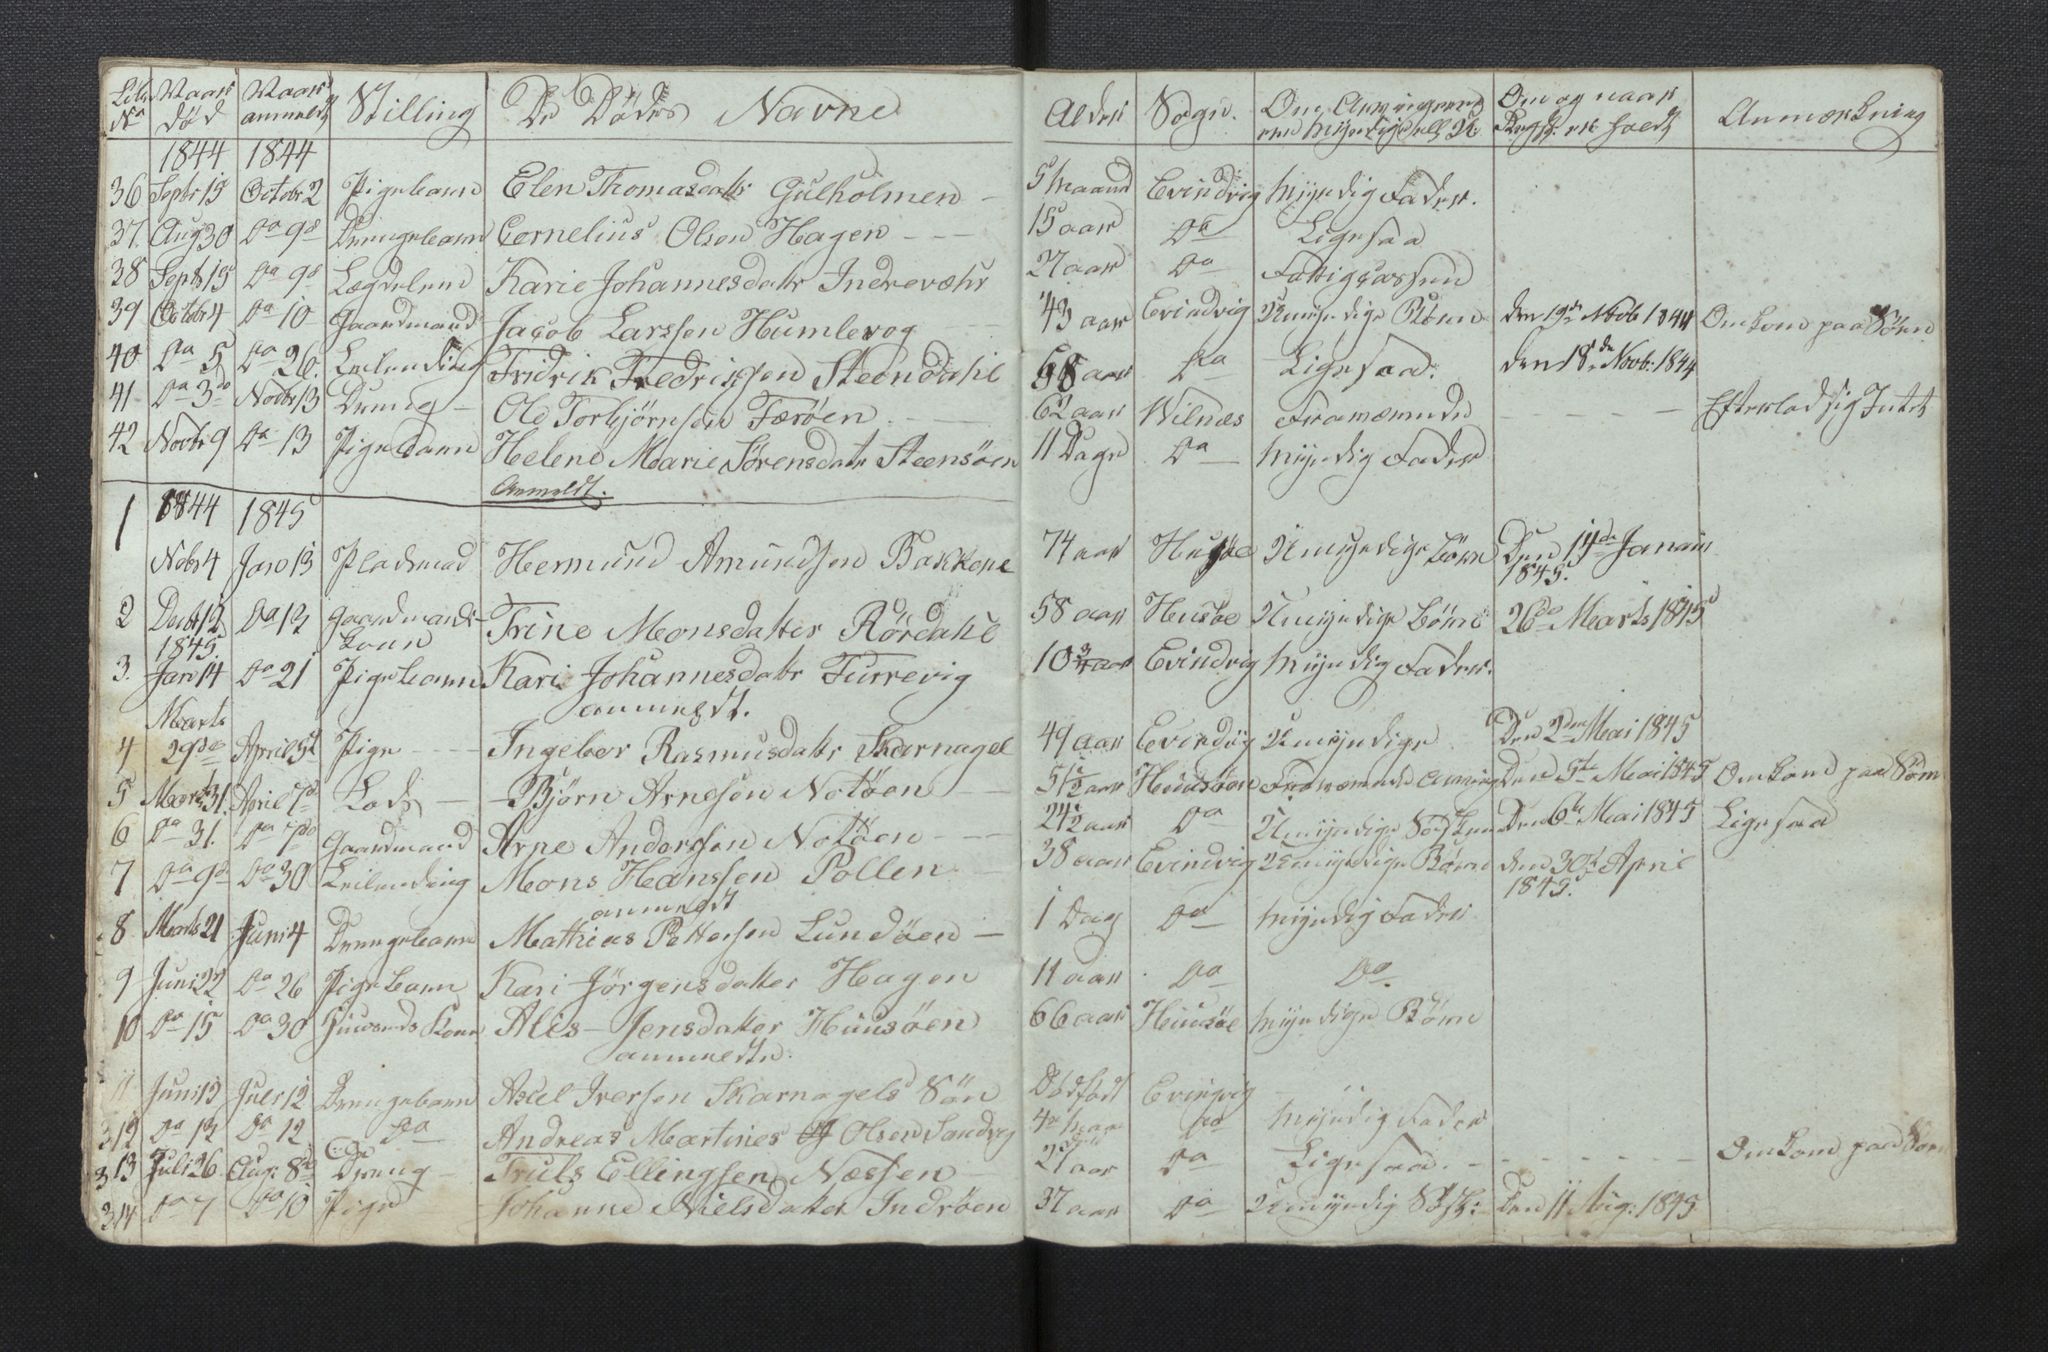 Lib No | Naar død | Naar anmeldt | Stilling | De Dødes Navne | Alder | Sogn. | Om Arvingerne ere myndige ell. U: | Om og naar Regst. er holdt | Anmærkning
1844 | 1844
36 | Septbr 15 | Octobr 2 | Pigebarn | Elen Thomasdatr Gulholmen – | 5 Maaned | Evindvig | Myndig Fader.
37. | Aug 30 | Do 9de | Drengebarn | Cornelius Olsen Hagen – – | 15 aar | Do | Ligesaa
38 | Septbr 15 | Do 9de | Lægdelem | Karie Johannesdatr Indrevæhr | 27 aar | Do | Fattigcassen
39 | Octobr 4 | Do 10 | Gaardmand | Jacob Larssen Humlevog – | 43 aar | Evindvig | Umyndige Børn | den 19de Novb 1844 | Omkom paa Søen
40 | Do 5 | Do 26. | Leilending | Fridrik Fredrikssen Steendahl | 68 aar | Do | Ligesaa. | den 18de Novb: 1844
41 | Do 3de | Novbr 13 | Dreng – | Ole Torbjørnsen Færøen – | 62 aar | Wilnæs | Fraværende | – – – – | Efterlod sig Intet
42 | Novbr 9 | Do 13 | Pigebarn | Helene Marie Sørensdatr Steensøen | 11 Dage | Do | Myndig Fader
Anmeldt.
1 | 1844 | 1845
Nobr 4 | Jan 13 | Pladsmad | Hermund Amundsen Bakkene | 74 aar | Husøe | Umyndige børn | Den 14de Januar 1845.
2 | Decbr 12 | Do 13 | Gaardmands Kone | Trine Monsdatter Rørdahl | 58 aar | Husøe | Umyndige børn | 26de Marts 1845
1845.
3. | Jan 14 | Do 21 | Pigebarn | Kari Johannesdatr Furrevig | 10 3/4 aar | Evindvig | Myndig Fader.
anmeldt.
4 | Marts 29de | April 5te | Pige – – – | Ingebor Rasmusdatr Skarnagel | 49 aar | Evindvig | Umyndige | Den 2den Mai 1845
5 | Marts 31. | April 7de | Lods – | – Bjørn Arnesen Notøen – – | 51 1/2 aar | Huusøen | Fraværende Arving | Den 5te Mai 1845 | Omkom paa Søen
6 | Do 31. | Do 7de | Gaardmand | Arne Andersen Notøen – – – | 24 1/2 aar | Do | Umyndige Søskene | Den 6te Mai 1845 | Ligesaa
7 | Do 9de | Do 30 | Leilending | Mons Hanssen Pollen – | 38 aar | Evindvig | Umyndige Børn | den 30te April 1845.
anmeldt
8 | Marts 21 | Juni 4 | Drengebarn | Mathias Pettersen Lundøen – | 1 Dag | Do | Myndig Fader
9 | Juni 22 | Do 26 | Pigebarn | Kari Jørgensdatter Hagen | 11 aar | Do | Do.
10 | Do 15 | Do 30 | Huusmands Kone | Alis – Jensdatter Huusøen | 66 aar | Huusøe | Myndige Børn
anmeldte.
11 | Juni 13 | Juli 12 | Drengebarn | Axel Iversen Skarnagels Søn | Dødfødt | Evingvig
12 | Do 13 | Do 12 | Do | Andreas Martines Olsen Sandvig | 4 | Do | Myndig Fader
13 | Juli 26 | Aug: 8de | Dreng – | Truls Ellingsen Næssen – | 21 aar | Do | Ligesaa. – | – – – – – | Omkom paa Søen
14 | Do 7 | Do 10 | Pige | Johanne Nielsdatter Indrøen | 37 aar | Do | Umyndig Søsk: | Den 11 Aug: 1845